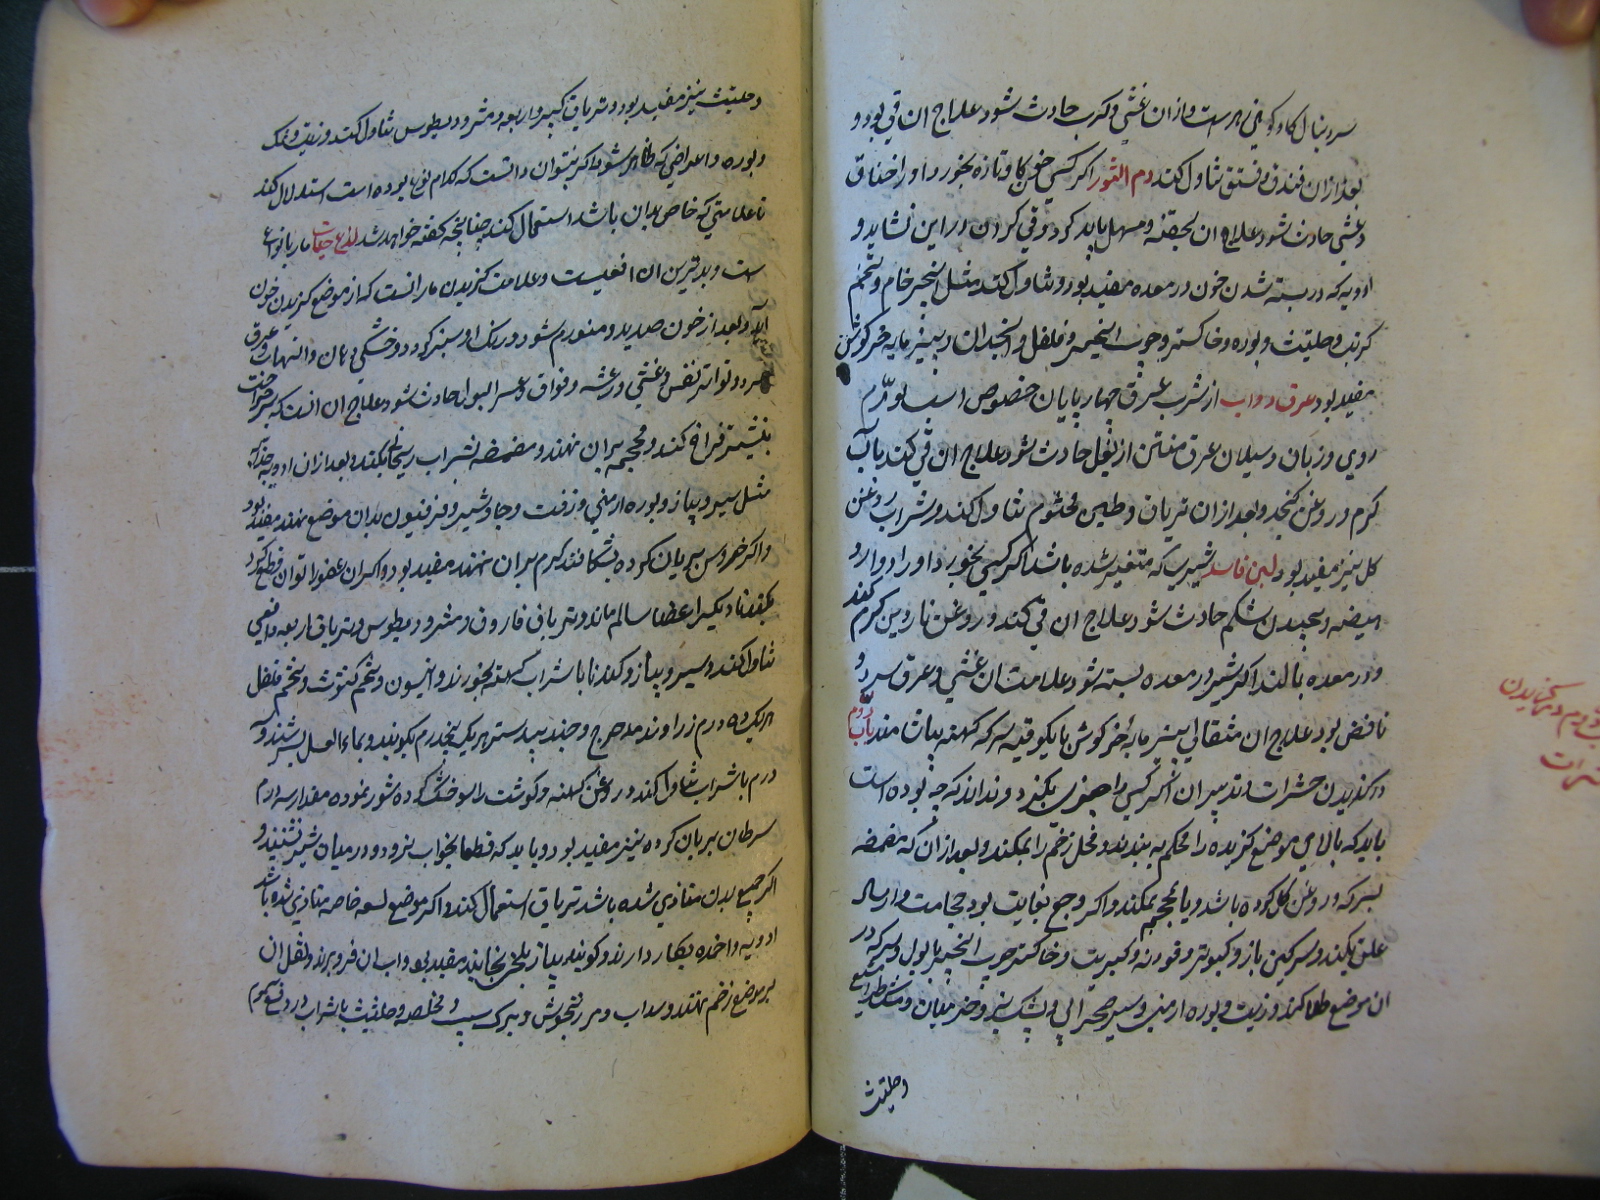 سر دنبال کاو کوهی زهرست و ازان غشی و کرب حادث شود علاج ان قی بود و
بعد ازان فندق و فستق تناول کنند دم الثور اکر کسی خون کاو تازه بخورد او را خناق
و غشی حادث شود علاج ان بحقنه و مسهل باید کرد و قی کردن در این نشاید و
ادویه که در بسته شدن خون در معده مفید بود تناول کنند مثل انجیر خام و تخم
کرنب و حلتیث و بوره و خاکستر چوب انجیر و فلفل و انجدان و پنیر مایه خرکوش
مفید بود عرق دواب از شرب عرق چهار پایان خصوص اسب تورم
روی و زبان و سیلان عرق منتن از بغل حادث شود علاج ان قی کند باب
کرم و روغن کنجد و بعد ازان تریاق و طین مختوم تناول کنند و شراب و روغن
کل نیز مفید بود لبن فاسد شیری که متغیر شده باشد اکر کسی بخورد او را دوار و
هیضه و پیچیدن شکم حادث شود علاج ان قی کند و روغن ناردین کرم کنند
و در معده بمالند اکر شیر در معده بسته شود علامت ان غشی و عرق سرد و
نافض بود علاج ان مثقالی پنیر مایه خرکوش با یکوقیه سرکه کهنه بیاشامند باب دوم
در کزیدن حشرات و تدبیر ان اکر کسی را جنوری بکزد و نداند که چه بوده است
باید که بالای موضع کزیده را محکم به بندند و محل زخم را بمکند و بعد ازان که مضمضه
بسرکه و روغن کل کرده باشد و یا بمحجمه بمکند و اکر وجع بغایت بود حجامت و ارسال
علق بکنند و سرکین باز و کبوتر و قورنه و کبریت و خاکستر چوب انجیر با بول و سرکه در
ان موضع طلا کنند و زیت و بوره ارمنی و سیر صحرائی و پشک بز
و حلتیث
و حلتیث نیز مفید بود و تریاق کبیر و اربعه و مثرودیطوس تناول کنند و زیت و نمک
و بوره و اعراضی که ظاهر شود اکر بتوان دانست که کدام نوع بوده است استدلال کند
تا علامتی که خاص بدان باشد استعمال کند چنانچه کفته خواهد شد لذع حیات مار بانواع
ست و بدترین ان افعیست و علامت کزیدن مار انست که از موضع کزیدن خون
آید و بعد از خون صدید و متورم شود و رنک او سبز کردد و خشکی دهان و التهاب و عرق
سرد و تواتر نفس و غشی و رعشه و فواق و عسر البول حادث شود علاج ان انست که
بنیشتر فراخ کنند و محجمه بران نهند و مضمضه بشراب ریحانی بکند و بعد ازان ادویه
مثل سیر و پیاز و بوره ارمنی و زفت و جاوشیر و فرفیون بدان موضع نهند مفید بود
و اکر خروس بریان کرده بشکافند کرم بران نهند مفید بود و اکر ان عضو را توان قطع کرد
بکنند تا دیکر اعضا سالم ماند و تریاق فاروق و مثرودیطوس و تریاق اربعه و افعی
تناول کند و سیر و پیاز و کندنا با شراب کهنه بخورند و انیسون و تخم کشوث و تخم فلفل
هریک ده درم زراوند مدحرج و جند بیدستر هریک پنج درم بکوبند و بماء العسل بسرشند و
درم با شراب تناول کند و روغن کهنه و کوشت راسو خشک کرده شور نموده مقدار سه درم
سرطان بریان کرده نیز مفید بود و باید که قطعا بخواب نرود و در میان شیر نشیند و
اکر جمیع بدن متاذی شده باشد تریاق استعمال کند و اکر موضع لسعه خاصه متاذی شده باشد
ادویه و اضمده بکار دارند و کویند پیاز بخایند مفید بود و اب ان فرو برند و ثفل ان
بر موضع زخم نهند و سداب و مرزنجوش و برک سیب و مخلصه و حلتیث با شراب در دفع سموم